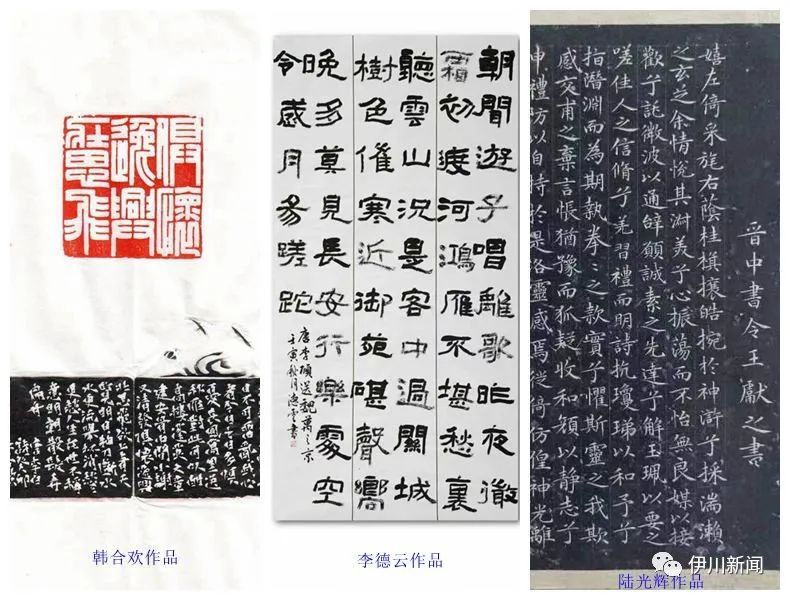 俱懷
逸興
壯思飛
朝聞遊子唱離歌昨夜微
霜初渡河鴻雁不堪愁裏
聽雲山況是客中過關城
樹色催寒近御苑碪聲嚮
晚多莫見長安行樂處空
令歲月易蹉跎
唐李頎送魏萬之京
壬寅秋月德雲書
晉中書令王獻之書
嬉左倚采旄右蔭桂旗攘皓捥於神滸兮採湍瀨
之玄芝余情悅其淑美兮心振蕩而不怡無良媒以接
歡兮託微波以通辭願誠素之先達兮解玉珮以要之
嗟佳人之信脩兮羌習禮而明詩抗瓊珶以和予兮
指潛淵而為期執拳〻之款實兮懼斯靈之我欺
感交甫之棄言悵猶豫而狐疑收和顏以靜志兮
申禮防以自持於是洛靈感焉徙倚仿偟神光離
韩合欢作品
李德云作品
陆光辉作品
伊川新闻